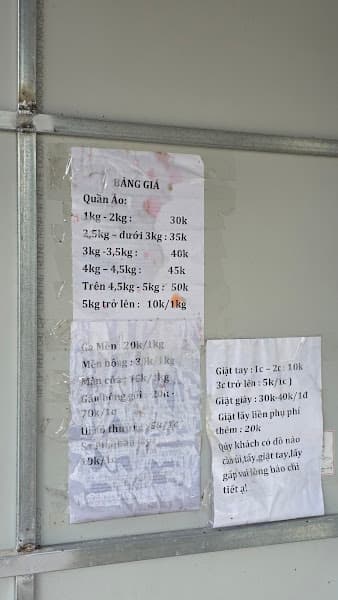 BẢNG GIÁ
Quần Áo:
1kg - 2kg : 30k
2,5kg – dưới 3kg : 35k
3kg -3,5kg : 40k
4kg – 4,5kg : 45k
Trên 4,5kg - 5kg : 50k
5kg trở lên : 10k/1kg
Ga Mền 20k/1kg
Mền bông :
Màn cửa :
Gấu bông gối :
70k/1c
Giặt tay : 1c – 2c : 10k
3c trở lên : 5k/1c )
Giặt giày : 30k-40k/1d
Giặt lấy liền phụ phí
thêm : 20k
Qúy khách có đồ nào
cần ủi,tẩy,giặt tay,lấy
gấp vui lòng báo chi
tiết ạ!